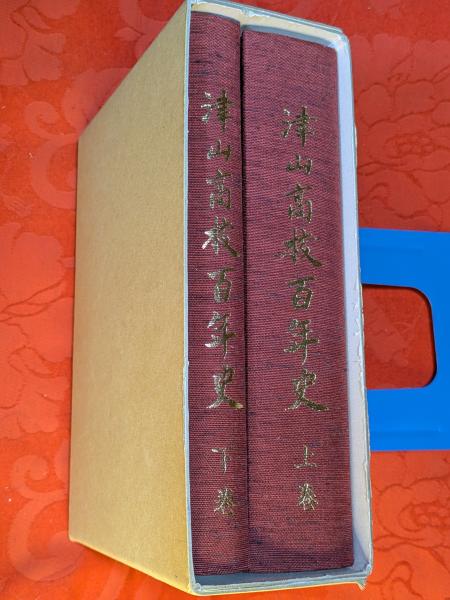 津山高校百年史 上巻
津山高校百年史 下巻